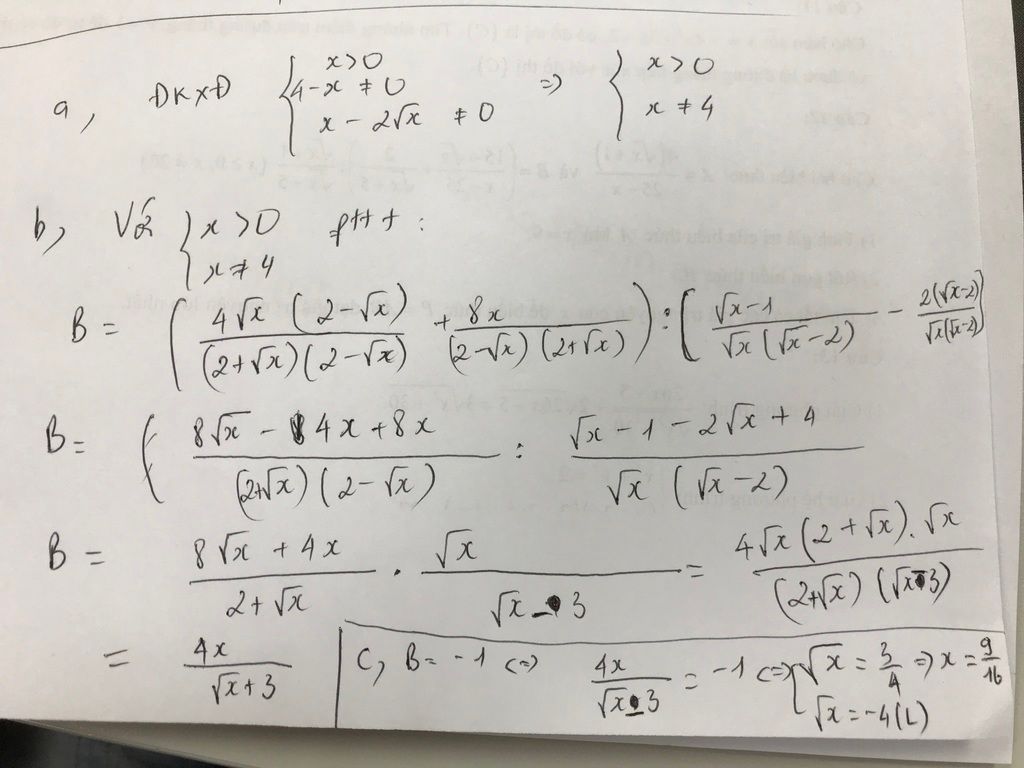 a, ĐKXĐ { x>0 ; 4-x ≠ 0 ; x - 2√x ≠ 0 => { x>0 ; x ≠ 4
b, Với { x>0 ; x ≠ 4 pttt :
B = ( 4√x (2-√x) / (2+√x)(2-√x) + 8x / (2-√x)(2+√x) ) : ( √x-1 / √x(√x-2) - 2(√x-2) / √x(√x-2) )
B = ( 8√x - 4x + 8x / (2+√x)(2-√x) : √x - 1 - 2√x + 4 / √x (√x-2)
B = 8√x + 4x / 2+√x . √x / √x - 3 = 4√x(2+√x).√x / (2+√x)(√x-3)
= 4x / √x+3
C, B = -1 <=> 4x / √x-3 = -1 <=> [ √x = 3/4 => x = 9/16 ; √x = -4 (L)